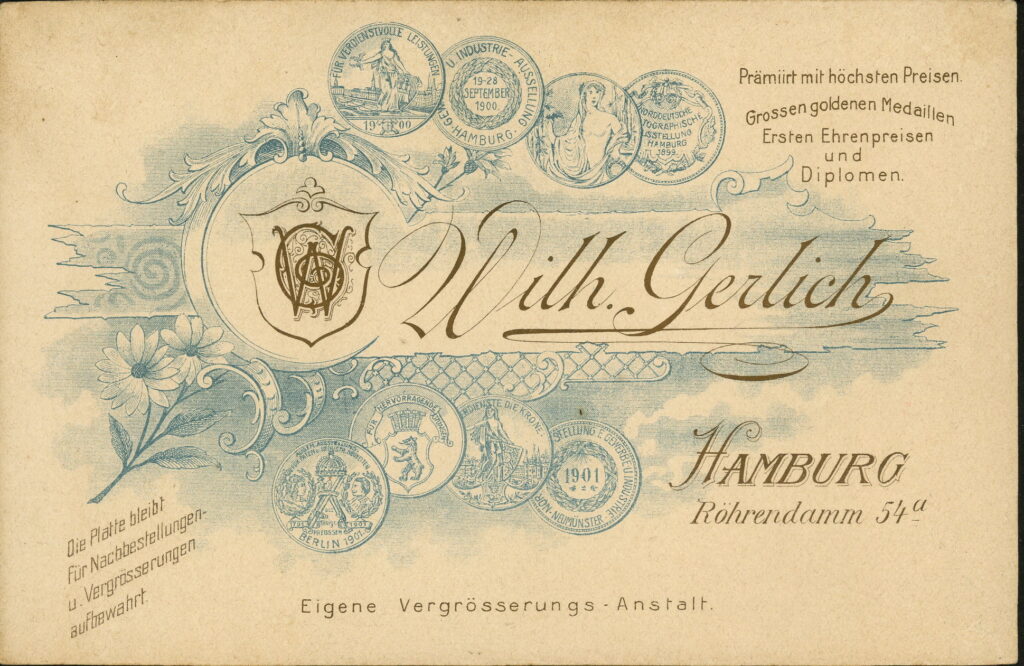 FÜR VERDIENSTVOLLE LEISTUNGEN
1900
U. INDUSTRIE-AUSSELLUNG
19-28
SEPTEMBER
1900.
HAMBURG.
AUSSTELLUNG
HAMBURG
1899.
Prämiirt mit höchsten Preisen.
Grossen goldenen Medaillen
Ersten Ehrenpreisen
und
Diplomen.
Wilh. Gerlich
HERVORRAGENDE
DIENSTE DIE KRONE
STELLUNG F. GEWERBE U. INDUSTRIE
1901
NEUMÜNSTER
1701
1901
PREUSSEN
BERLIN 1901
HAMBURG
Röhrendamm 54a
Die Platte bleibt
für Nachbestellungen-
u. Vergrösserungen
aufbewahrt.
Eigene Vergrösserungs-Anstalt.